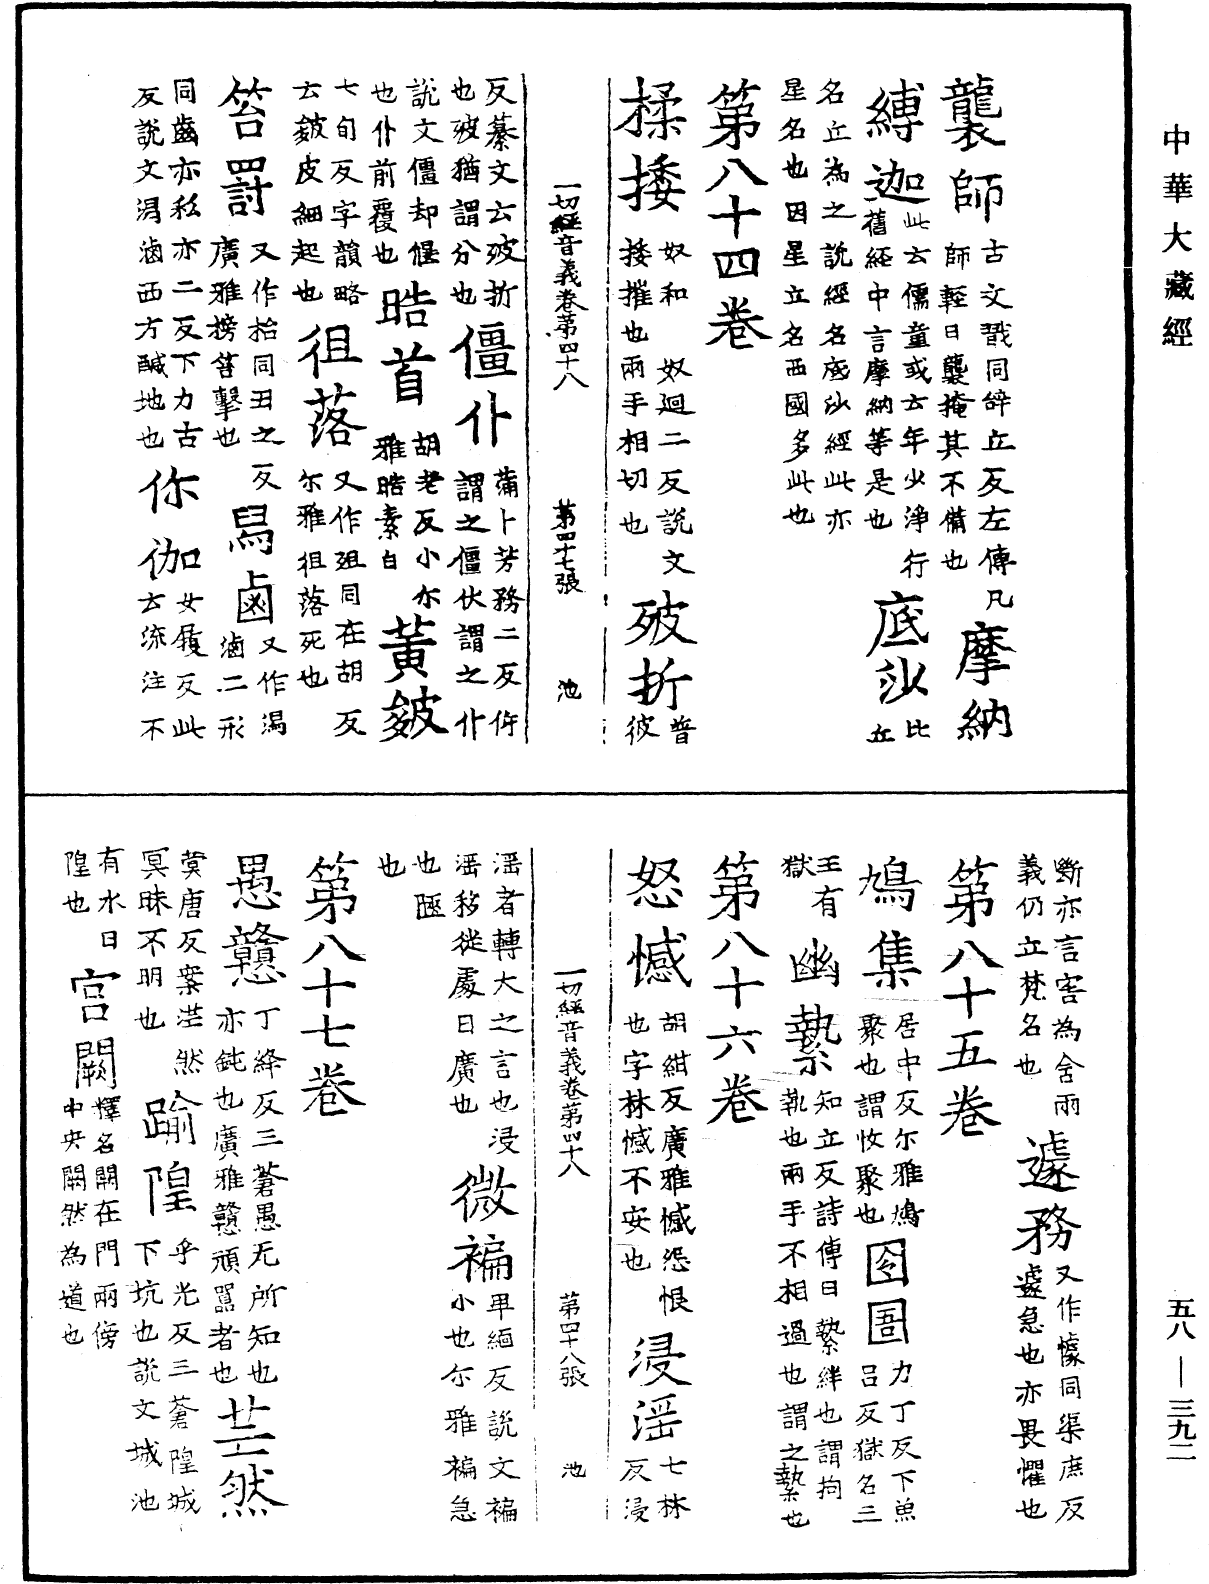 中華大藏經
襲師 古文戠同辝立反左傳凡師輕曰襲掩其不備也 摩納
縛迦 此云儒童或云年少淨行舊經中言摩納等是也 底沙 比丘
名丘為之說經名底沙經此亦星名也因星立名西國多此也
第八十四卷
揉捼 奴和奴迴二反說文捼摧也兩手相切也 㱟折 普彼
一切經音義卷第四十八 第四十七張 池
反纂文云㱟折也㱟猶謂分也 僵仆 蒲卜芳務二反仰謂之僵伏謂之仆
說文僵却偃也仆前覆也 晧首 胡老反小尒雅晧素白 黃皴
七旬反字韻略云皴皮細起也 徂落 又作殂同在胡反尒雅徂落死也
笞罰 又作抬同丑之反廣雅榜笞擊也 舄鹵 又作潟滷二形
同齒亦私亦二反下力古反說文潟滷西方鹹地也 你伽 女履反此云流注不
斷亦言害為含兩義仍立梵名也 遽務 又作懅同渠庶反遽急也亦畏懼也
第八十五卷
鳩集 居中反尒雅鳩聚也謂收聚也 囹圄 力丁反下魚呂反獄名三
王有獄 幽縶 知立反詩傳曰縶絆也謂拘執也兩手不相過也謂之縶也
第八十六卷
怒憾 胡紺反廣雅憾怨恨也字林憾不安也 浸淫 七林反浸
一切經音義卷第四十八 第四十八張 池
淫者轉大之言也浸淫移徙處日廣也 微褊 卑緬反說文褊小也尒雅褊急
也 也
第八十七卷
愚戇 丁絳反三蒼愚无所知也亦鈍也廣雅戇頑嚚者也 茫然
莫唐反案茫然冥昧不明也 踰隍 乎光反三蒼隍城下坑也說文城池
有水曰隍也 宮闕 釋名闕在門兩傍中央闕然為道也
五八—三九二